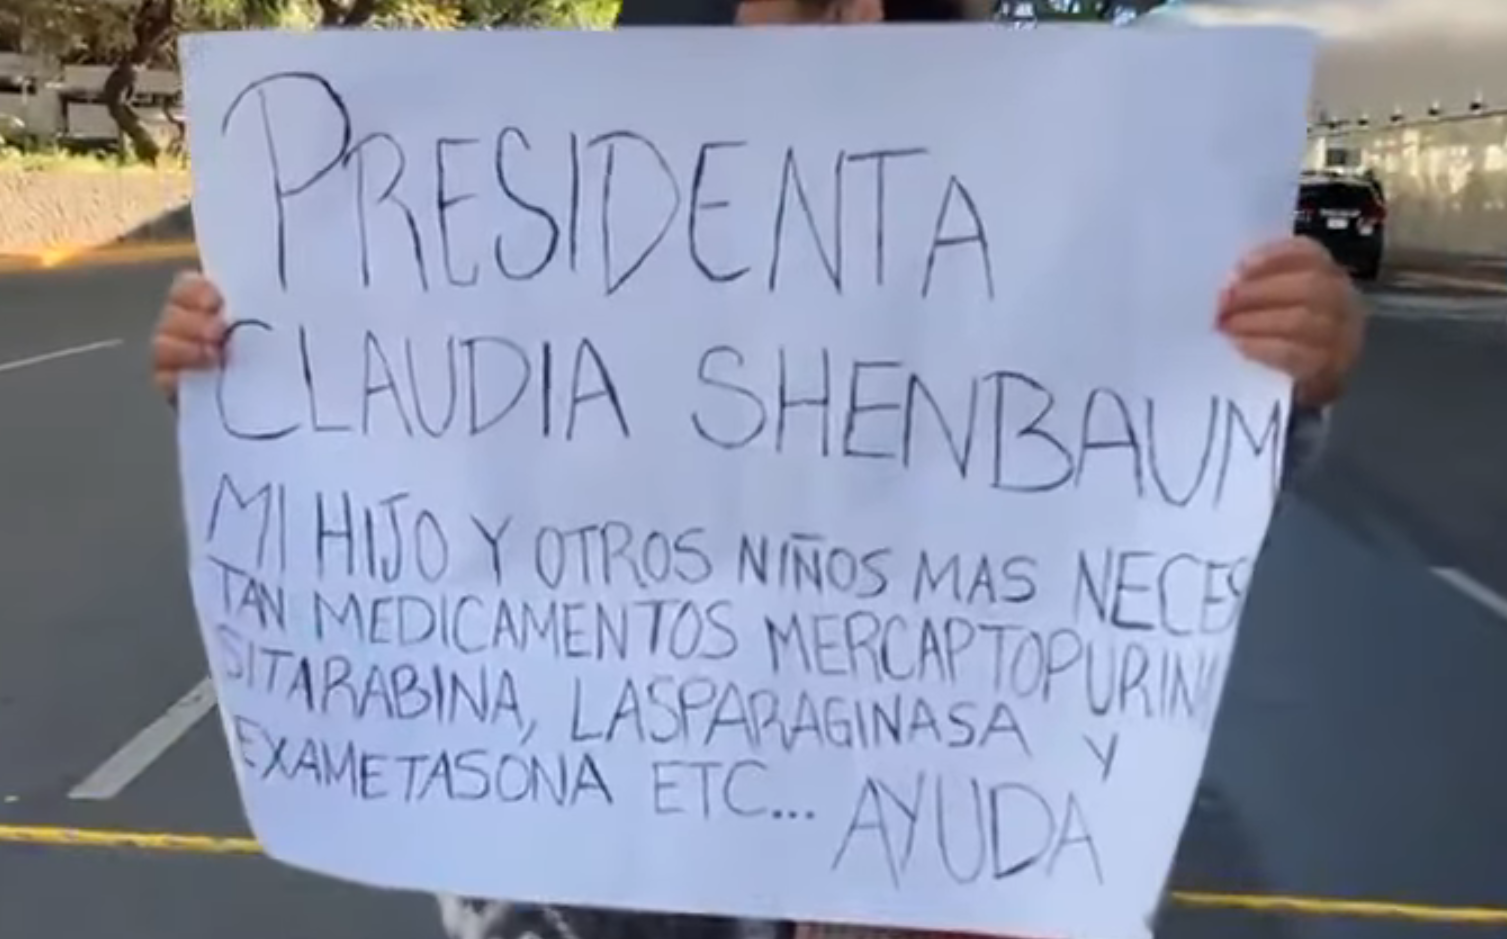 PRESIDENTA
CLAUDIA SHENBAUM
MI HIJO Y OTROS NIÑOS MAS NECES
TAN MEDICAMENTOS MERCAPTOPURIN
SITARABINA, LASPARAGINASA Y
EXAMETASONA ETC... AYUDA